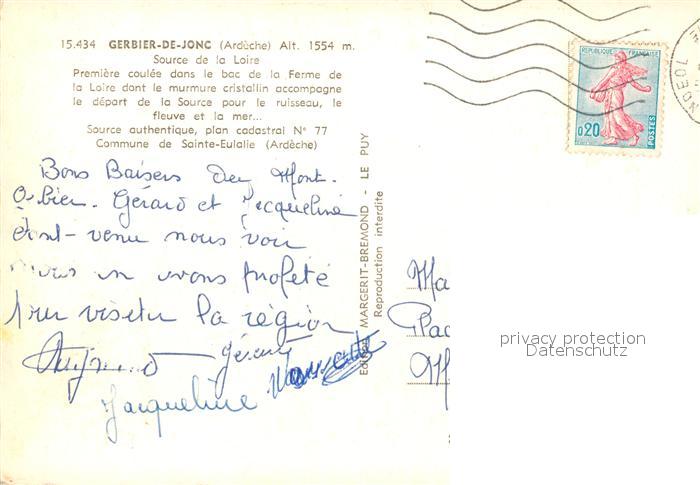 15.434 GERBIER-DE-JONC (Ardèche) Alt. 1554 m.
Source de la Loire
Première coulée dans le bac de la Ferme de
la Loire dont le murmure cristallin accompagne
le départ de la Source pour le ruisseau, le
fleuve et la mer...
Source authentique, plan cadastral N° 77
Commune de Sainte-Eulalie (Ardèche)
Bons Baisers du Mont-
Gerbier. Gérard et Jacqueline
étant venu nous voir
nous en avons profité
pour visiter la région
Gérard
Jacqueline
MARGERIT-BREMOND - LE PUY
Reproduction interdite
REPUBLIQUE FRANÇAISE
0,20
POSTES
Ma
Plac
M
privacy protection
Datenschutz